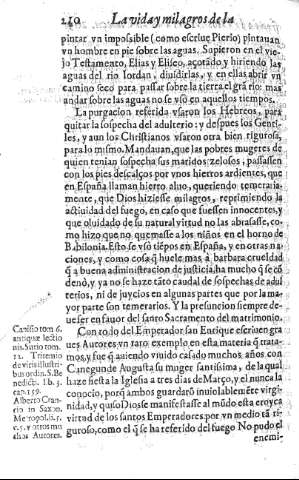 240 La vida y milagros de la
pintar vn impossible (como escriue Pierio) pintauan
vn hombre en pie sobre las aguas. Supieron en el vie-
jo Testamento, Elias y Eliseo, açotãdo y hiriendo las
aguas del rio Iordan, diuidirlas, y en ellas abrir vn
camino seco para passar sobre la tierra el grã rio: mas
andar sobre las aguas no se vso en aquellos tiempos.
La purgacion referida vsaron los Hebreos, para
quitar la sospecha del adulterio: y despues los Genti-
les, y aun los Christianos vsaron otra bien rigurosa,
para lo mismo. Mandauan, que las pobres mugeres de
quien tenian sospecha sus maridos zelosos, passassen
con los pies descalços por vnos hierros ardientes, que
en España llaman hierro albo, queriendo temeraria-
mente, que Dios hiziesse milagros, reprimiendo la
actiuidad del fuego, en caso que fuessen innocentes, y
que oluidado de su natural virtud no las abrasasse, co-
mo hizo que no quemasse a los niños en el horno de
Babilonia. Esto se vsò tiẽpos en España, y en otras na-
ciones, y como cosa q̃ huele mas à barbara crueldad
q̃ a buena administracion de justicia, ha mucho q̃ se cõ
denò, y ya no se haze tãto caudal de sospechas de adul
terios, ni de juyzios en algunas partes que por la ma-
yor parte son temerarios. Y la presuncion siempre de-
ue ser en fauor del santo Sacramento del matrimonio.
Canisio tom 6.
antiquæ lectio
nis. Surio tom.
12. Tritemio
de viris illustri-
bus ordin. S. Be
nedict. lib. 3.
cap. 159.
Alberto Cran-
tio in Saxon.
Metropol. li. 5.
c. 5. y otros mu
chos Autores.
Con todo del Emperador san Enrique escriuen gra
ues Autores vn raro exemplo en esta materia q̃ trata-
mos, y fue q̃ auiendo viuido casado muchos años con
Canegunde Augusta su muger santissima, de la qual
haze fiesta la Iglesia a tres dias de Março, y el nunca la
conocio, porq̃ ambos guardarõ inuiolablemẽte virgi-
nidad, y quiso Dios se manifestasse al mũdo esta eroyca
virtud de los santos Emperadores por vn medio tã ri-
guroso, como el q̃ se ha referido del fuego No pudo el
enemi-